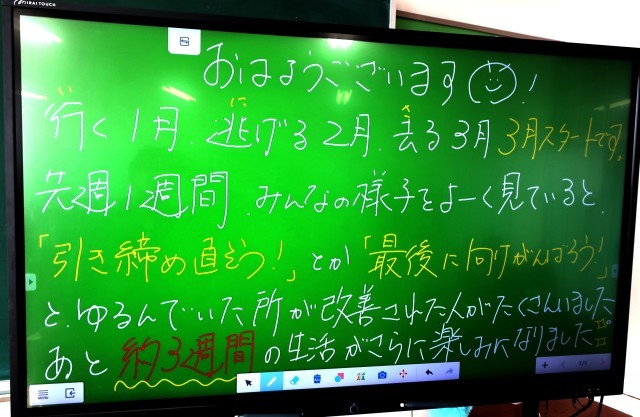 MIRAI TOUCH
おはようございます!
行く1月、逃げる2月、去る3月 3月スタートです。
先週1週間、みんなの様子をよーく見ていると、
「引き締め直そう!」とか「最後に向けがんばろう!」
と、ゆるんでいた所が改善された人がたくさんいました。
あと約3週間の生活がさらに楽しみになりました